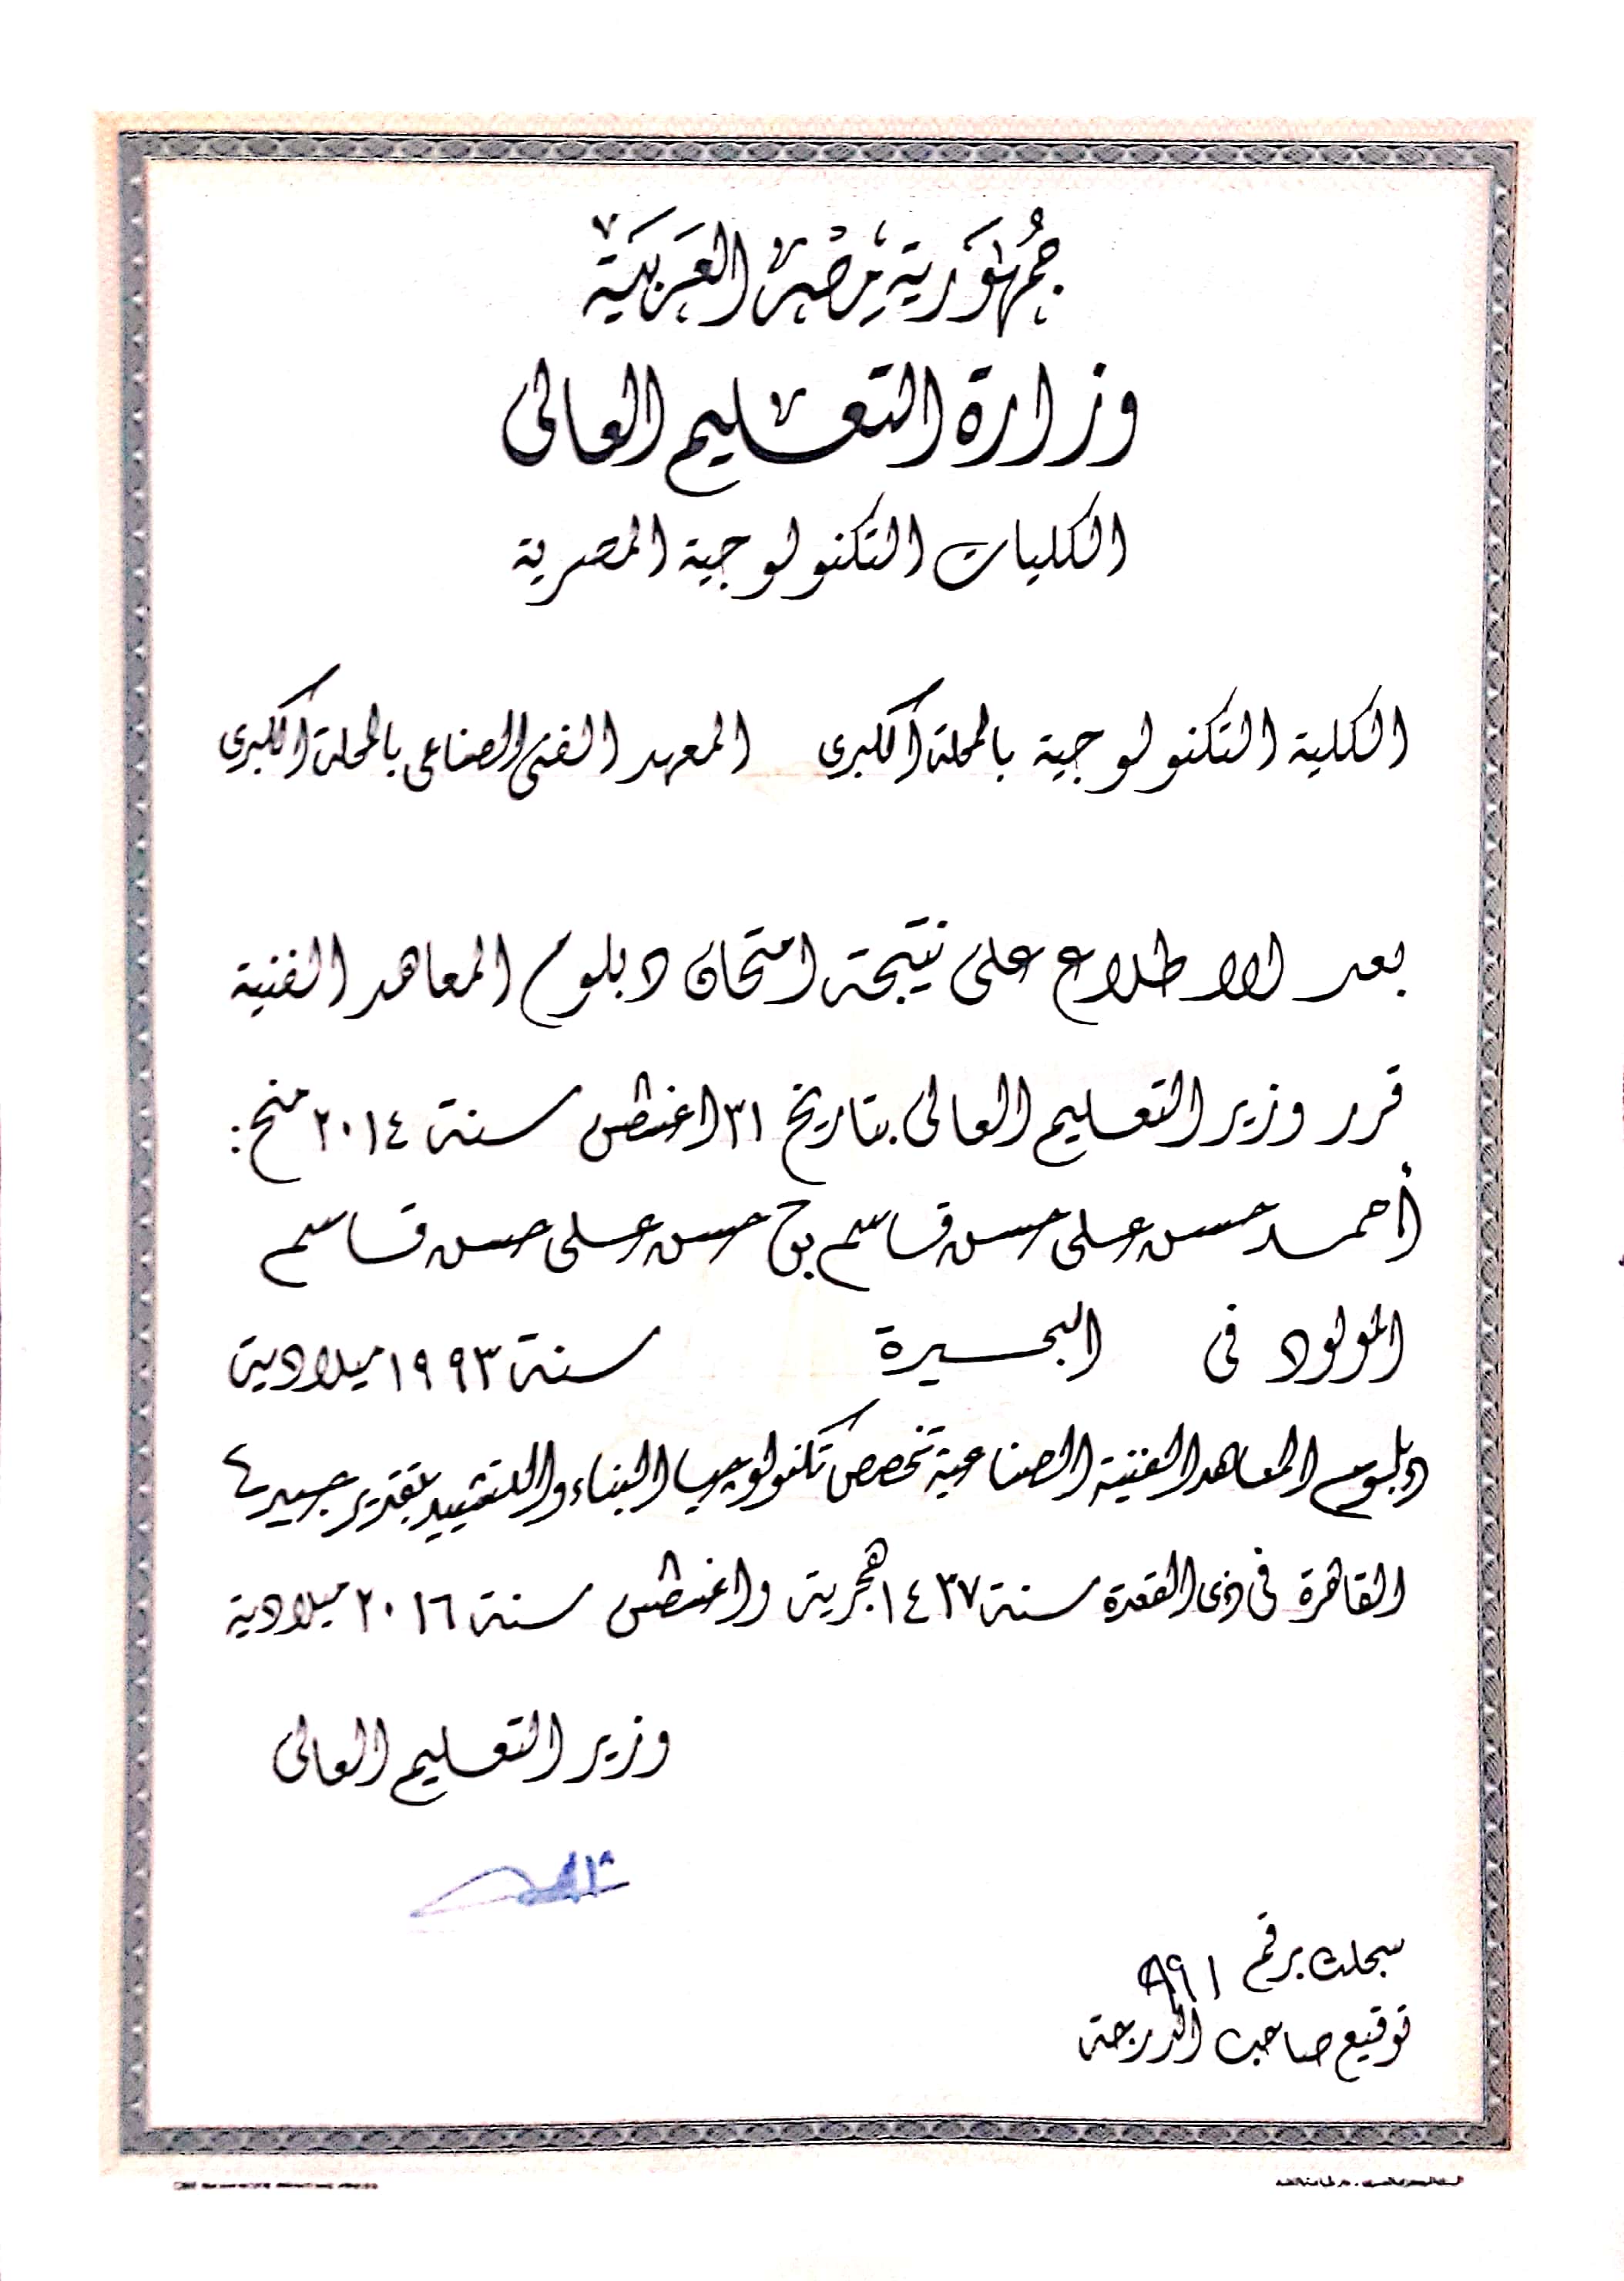 جمهورية مصر العربية
وزارة التعليم العالى
الكليات التكنولوجية المصرية
الكلية التكنولوجية بالمحلة الكبرى المعهد الفنى الصناعى بالمحلة الكبرى
بعد الاطلاع على نتيجة امتحان دبلوم المعاهد الفنية
قرر وزير التعليم العالى بتاريخ ٣١ اغسطس سنة ٢٠١٤ منح:
أحمد حسن على حسن قاسم بن حسن على حسن قاسم
المولود فى البحيرة سنة ١٩٩٣ ميلادية
دبلوم المعاهد الفنية الصناعية تخصص تكنولوجيا البناء والتشييد بتقدير جيد
القاهرة فى ذى القعدة سنة ١٤٣٧ هجرية واغسطس سنة ٢٠١٦ ميلادية
وزير التعليم العالى
سجلت برقم
توقيع صاحب الدرجة